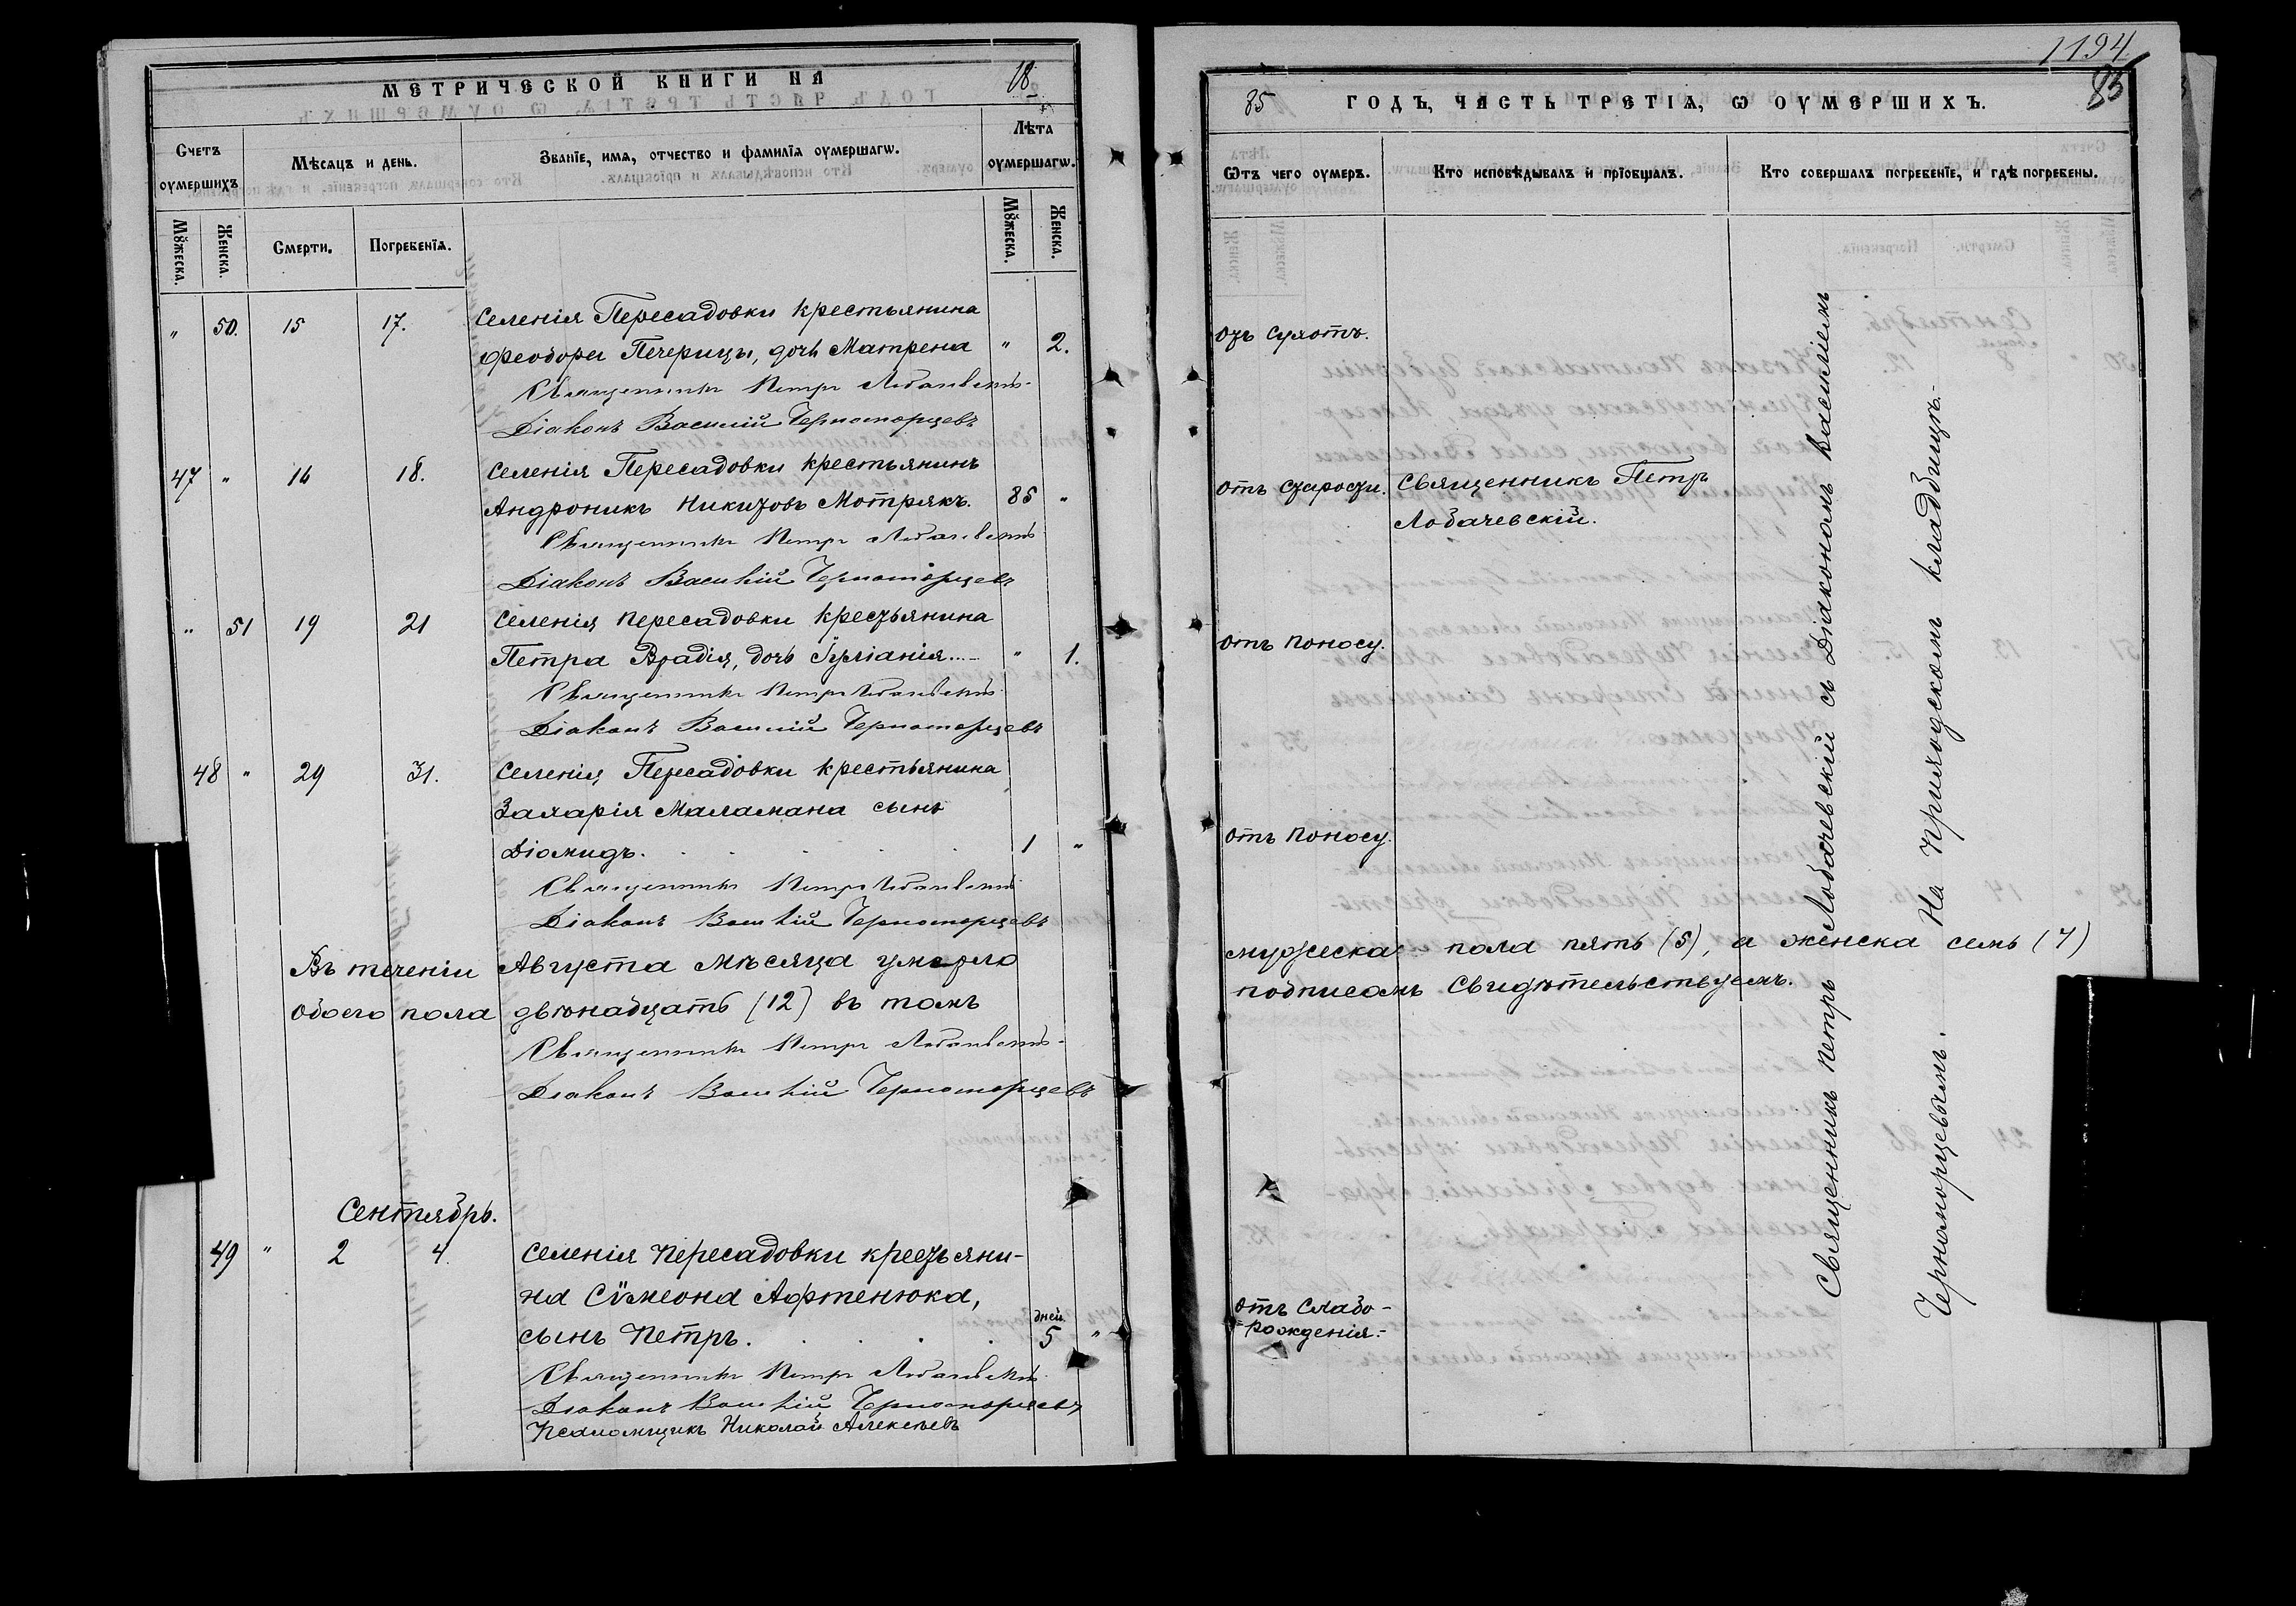 МЕТРИЧЕСКОЙ КНИГИ НА 18
Счетъ оумершихъ
Мѣсяцъ и день.
Званіе, имя, отчество и фамилія оумершагω.
Лѣта оумершагω.
Мꙋжеска.
Женска.
Смерти.
Погребенія.
Мꙋжеска.
Женска.
" 50. 15 17. Селенія Пересадовки крестьянина
Ѳеодора Печерицы, дочь Матрена " 2.
Священникъ Петръ Лобачевскій
Діаконъ Василій Черноморцевъ
47 " 16 18. Селенія Пересадовки крестьянинъ
Андроникъ Никитовъ Мотрякъ. 85 "
Священникъ Петръ Лобачевскій
Діаконъ Василій Черноморцевъ
" 51 19 21 Селенія Пересадовки крестьянина
Петра Врадія, дочь Іуліанія... " 1.
Священникъ Петръ Лобачевскій
Діаконъ Василій Черноморцевъ
48 " 29 31. Селенія Пересадовки крестьянина
Захарія Маламана сынъ
Діомидъ. 1 "
Священникъ Петръ Лобачевскій
Діаконъ Василій Черноморцевъ
Въ теченіи Августа мѣсяца умерло
обоего пола двѣнадцать (12) въ томъ
Священникъ Петръ Лобачевскій
Діаконъ Василій Черноморцевъ
Сентябрь.
49 " 2 4. Селенія Пересадовки крестьяни-
на Сѵмеона Афтенюка,
сынъ Петръ. дней 5 "
Священникъ Петръ Лобачевскій
Діаконъ Василій Черноморцевъ
Псаломщикъ Николай Алексѣевъ
1194
85 ГОДЪ, ЧАСТЬ ТРЕТІЯ, Ѡ ОУМЕРШИХЪ. 85
Ѿтъ чего оумеръ.
Кто исповѣдывалъ и пріобщалъ.
Кто совершалъ погребеніе, и гдѣ погребены.
отъ сухотъ.
отъ старости. Священникъ Петръ
Лобачевскій.
отъ поносу.
отъ поносу.
мужеска пола пять (5), а женска семь (7)
подписомъ свидѣтельствуемъ.
отъ слабо-
рожденія.
Священникъ Петръ Лобачевскій съ Діакономъ Василіемъ
Черноморцевымъ. На приходскомъ кладбищѣ.